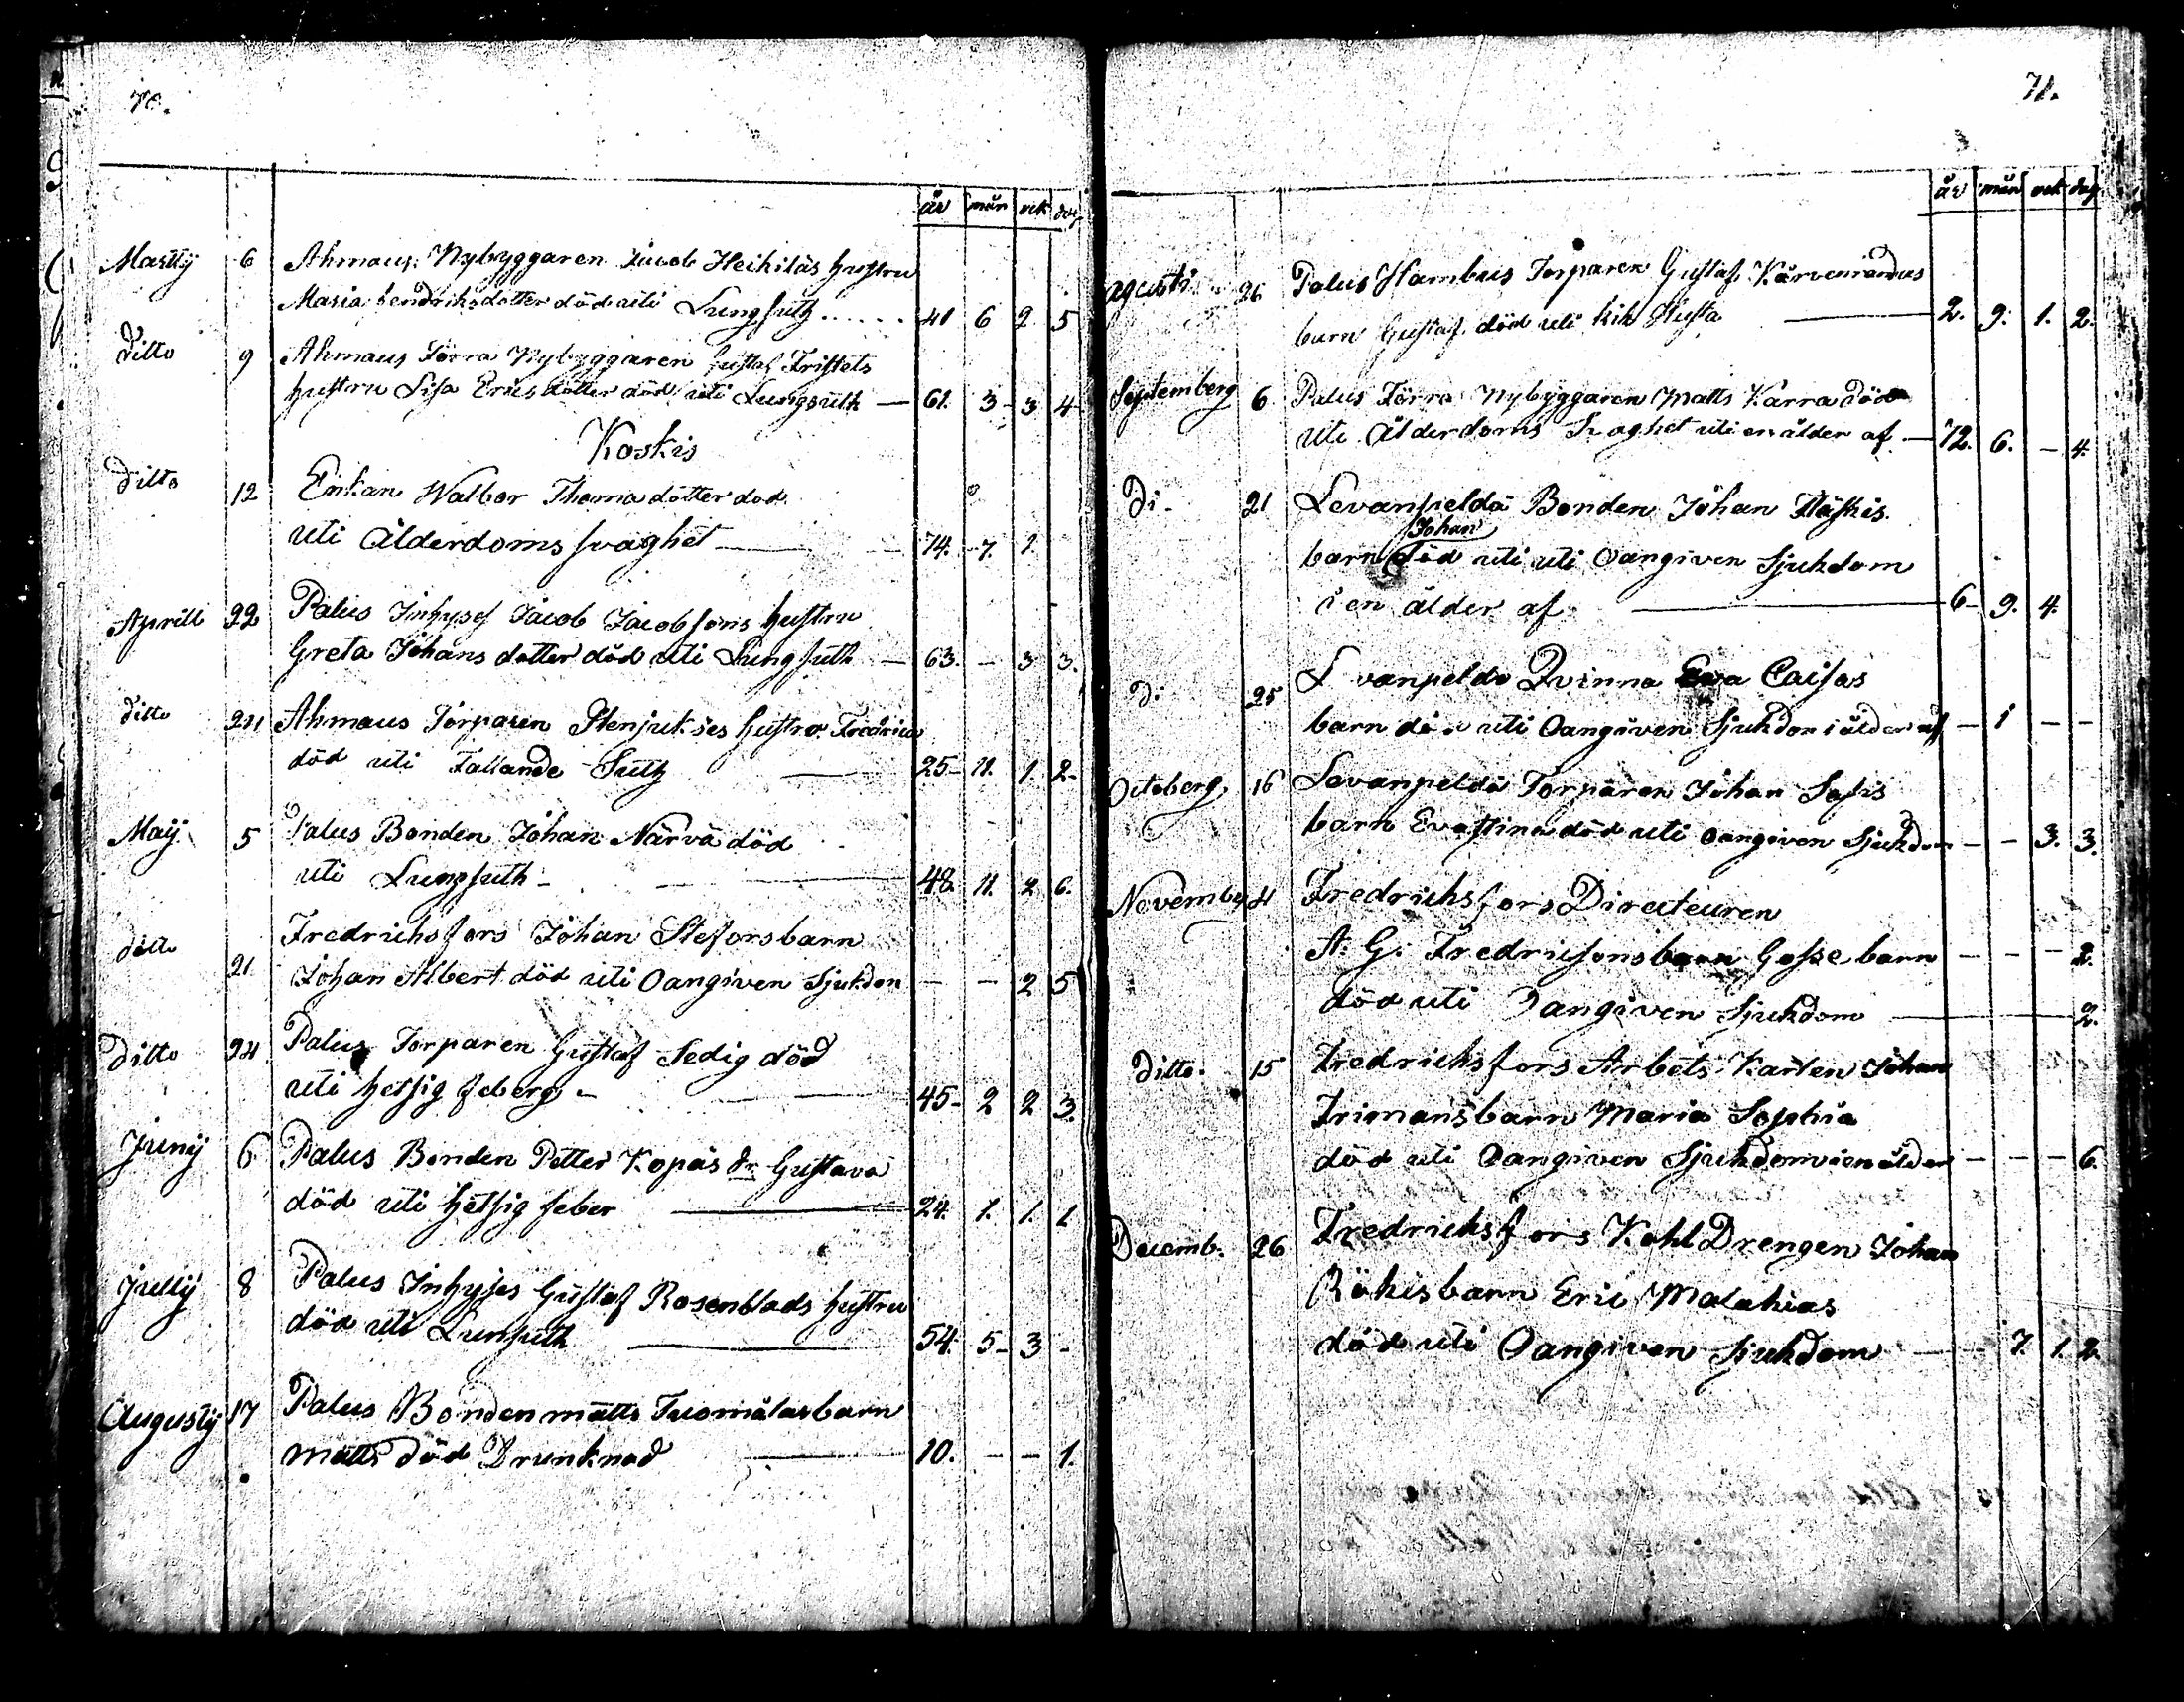 70.
år mån vek dag
Martij 6 Ahmaus Nybyggaren Jacob Heikiläs hustru
Maria hendriksdotter död uti Lungsutz ...... 41 6 2 5
Ditto 9 Ahmaus Törra Nybyggaren Gustaf Tristets
hustru Lisa Ericsdotter död uti Lungsuth — 61. 3 - 3 4
Koskis
Ditto 12 Enkan Walbor Thomadotter död
uti Ålderdoms svaghet — 74. 7. 1.
Aprill 22 Palus Inhyses Jacob Jacobsons hustru
Greta Johans dotter död uti Lungsuth — 63. - 3 3.
ditto 24 Ahmaus Torparen Stenjukses hustru Fredrica
död uti Fallande Sutz — 25- 11. 1. 2-
Maij 5 Palus Bonden Johan Närvä död
uti Lungsuth - — 48. 11. 2 6.
ditto 21 Fredrichsfors Johan Steforsbarn
Johan Albert död uti Oangiven Sjukdon — — 2 5
Ditto 24 Palus Torparen Gustaf Sedig död
uti hetsig feberg - — 45- 2 2 3.
Junij 6 Palus Bonden Petter Kopas dr Gustava
död uti hetsig feber — 24. 1. 1. 1
Jullij 8 Palus Inhyses Gustaf Rosenblads hustru
död uti Lunsuth — 54. 5- 3 -
Augustij 17 Palus Bonden matts Tuomälasbarn
matts död Drunknad — 10. - - 1.
71.
år mån vek dag
agusti 26 Palus Hambus Torparen Gustaf Kärvenrandus
barn Gustaf död uti kik Husta — 2. 9. 1. 2.
Septemberg 6 Palus Törra Nybyggaren Matts Karra död
uti Ålderdoms Svaghet uti en ålder af — 72. 6. - 4.
Di- 21 Levanpeldä Bonden Johan Häskis
Johan
barn död uti uti Oangiven Sjukdom
i en ålder af — 6- 9. 4.
Di 25 L vanpeldo Qvinna Eva Caisas
barn dö uti Oangiven Sjukdon i ålder af - 1 - -
Octoberg 16 Levanpeldä Torparen Johan Safis
barn Evastina död uti oangiven Sjukdom - - 3. 3.
Novemby 4 Fredrichsfors Directeuren
A. G. Fredricsons barn Gosse barn - - - 2.
död uti Oangiven Sjukdom — 2.
Ditto. 15 Fredrichsfors Arbets Karlen Johan
Frimansbarn Maria Sophia
död uti Oangiven Sjukdom i en ålder - - - 6.
Decemb. 26 Fredrichsfors Kohl Drengen Johan
Rökisbarn Eric Malakias
död uti Oangiven Sjukdom — 7. 1. 2.